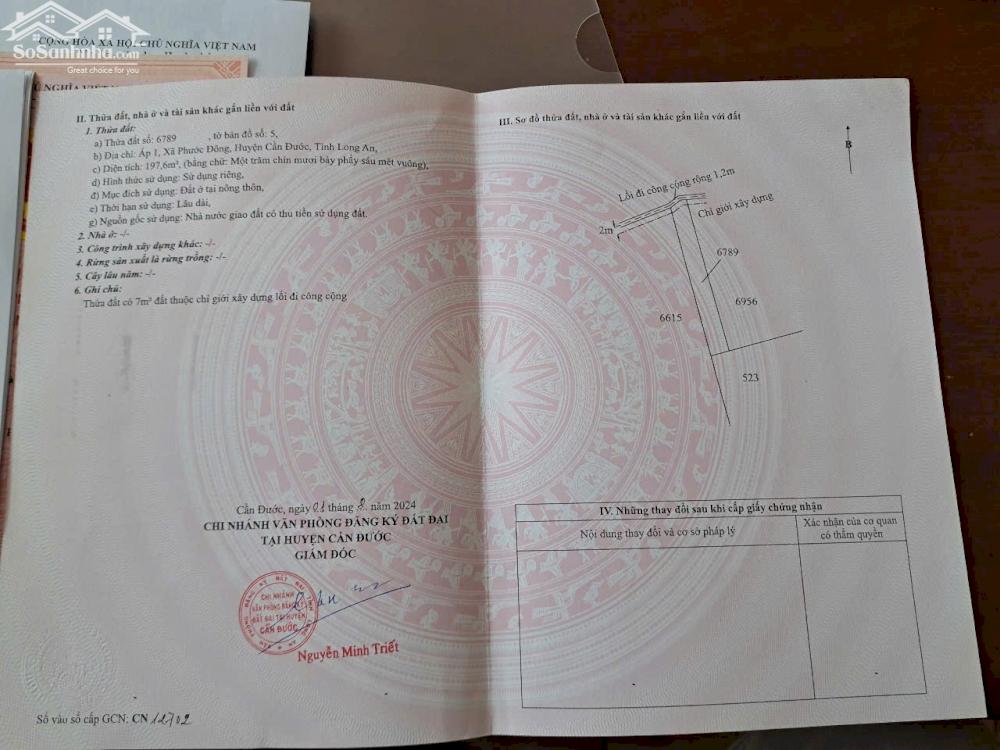 CỘNG HÒA XÃ HỘI CHỦ NGHĨA VIỆT NAM
SoSanhnha.com
Great choice for you
II. Thửa đất, nhà ở và tài sản khác gắn liền với đất
1. Thửa đất:
a) Thửa đất số: 6789 , tờ bản đồ số: 5,
b) Địa chỉ: Ấp 1, Xã Phước Đông, Huyện Cần Đước, Tỉnh Long An,
c) Diện tích: 197,6m², (bằng chữ: Một trăm chín mươi bảy phẩy sáu mét vuông),
d) Hình thức sử dụng: Sử dụng riêng,
đ) Mục đích sử dụng: Đất ở tại nông thôn,
e) Thời hạn sử dụng: Lâu dài,
g) Nguồn gốc sử dụng: Nhà nước giao đất có thu tiền sử dụng đất.
2. Nhà ở: -/-
3. Công trình xây dựng khác: -/-
4. Rừng sản xuất là rừng trồng: -/-
5. Cây lâu năm: -/-
6. Ghi chú:
Thửa đất có 7m² đất thuộc chỉ giới xây dựng lối đi công cộng
Cần Đước, ngày 01 tháng 8 năm 2024
CHI NHÁNH VĂN PHÒNG ĐĂNG KÝ ĐẤT ĐAI
TẠI HUYỆN CẦN ĐƯỚC
GIÁM ĐỐC
CHI NHÁNH
VĂN PHÒNG ĐĂNG KÝ
ĐẤT ĐAI TẠI HUYỆN
CẦN ĐƯỚC
Nguyễn Minh Triết
Số vào sổ cấp GCN: CN 12702
III. Sơ đồ thửa đất, nhà ở và tài sản khác gắn liền với đất
B
Lối đi công cộng rộng 1,2m
Chỉ giới xây dựng
2m
6789
6956
6615
523
IV. Những thay đổi sau khi cấp giấy chứng nhận
Nội dung thay đổi và cơ sở pháp lý
Xác nhận của cơ quan
có thẩm quyền